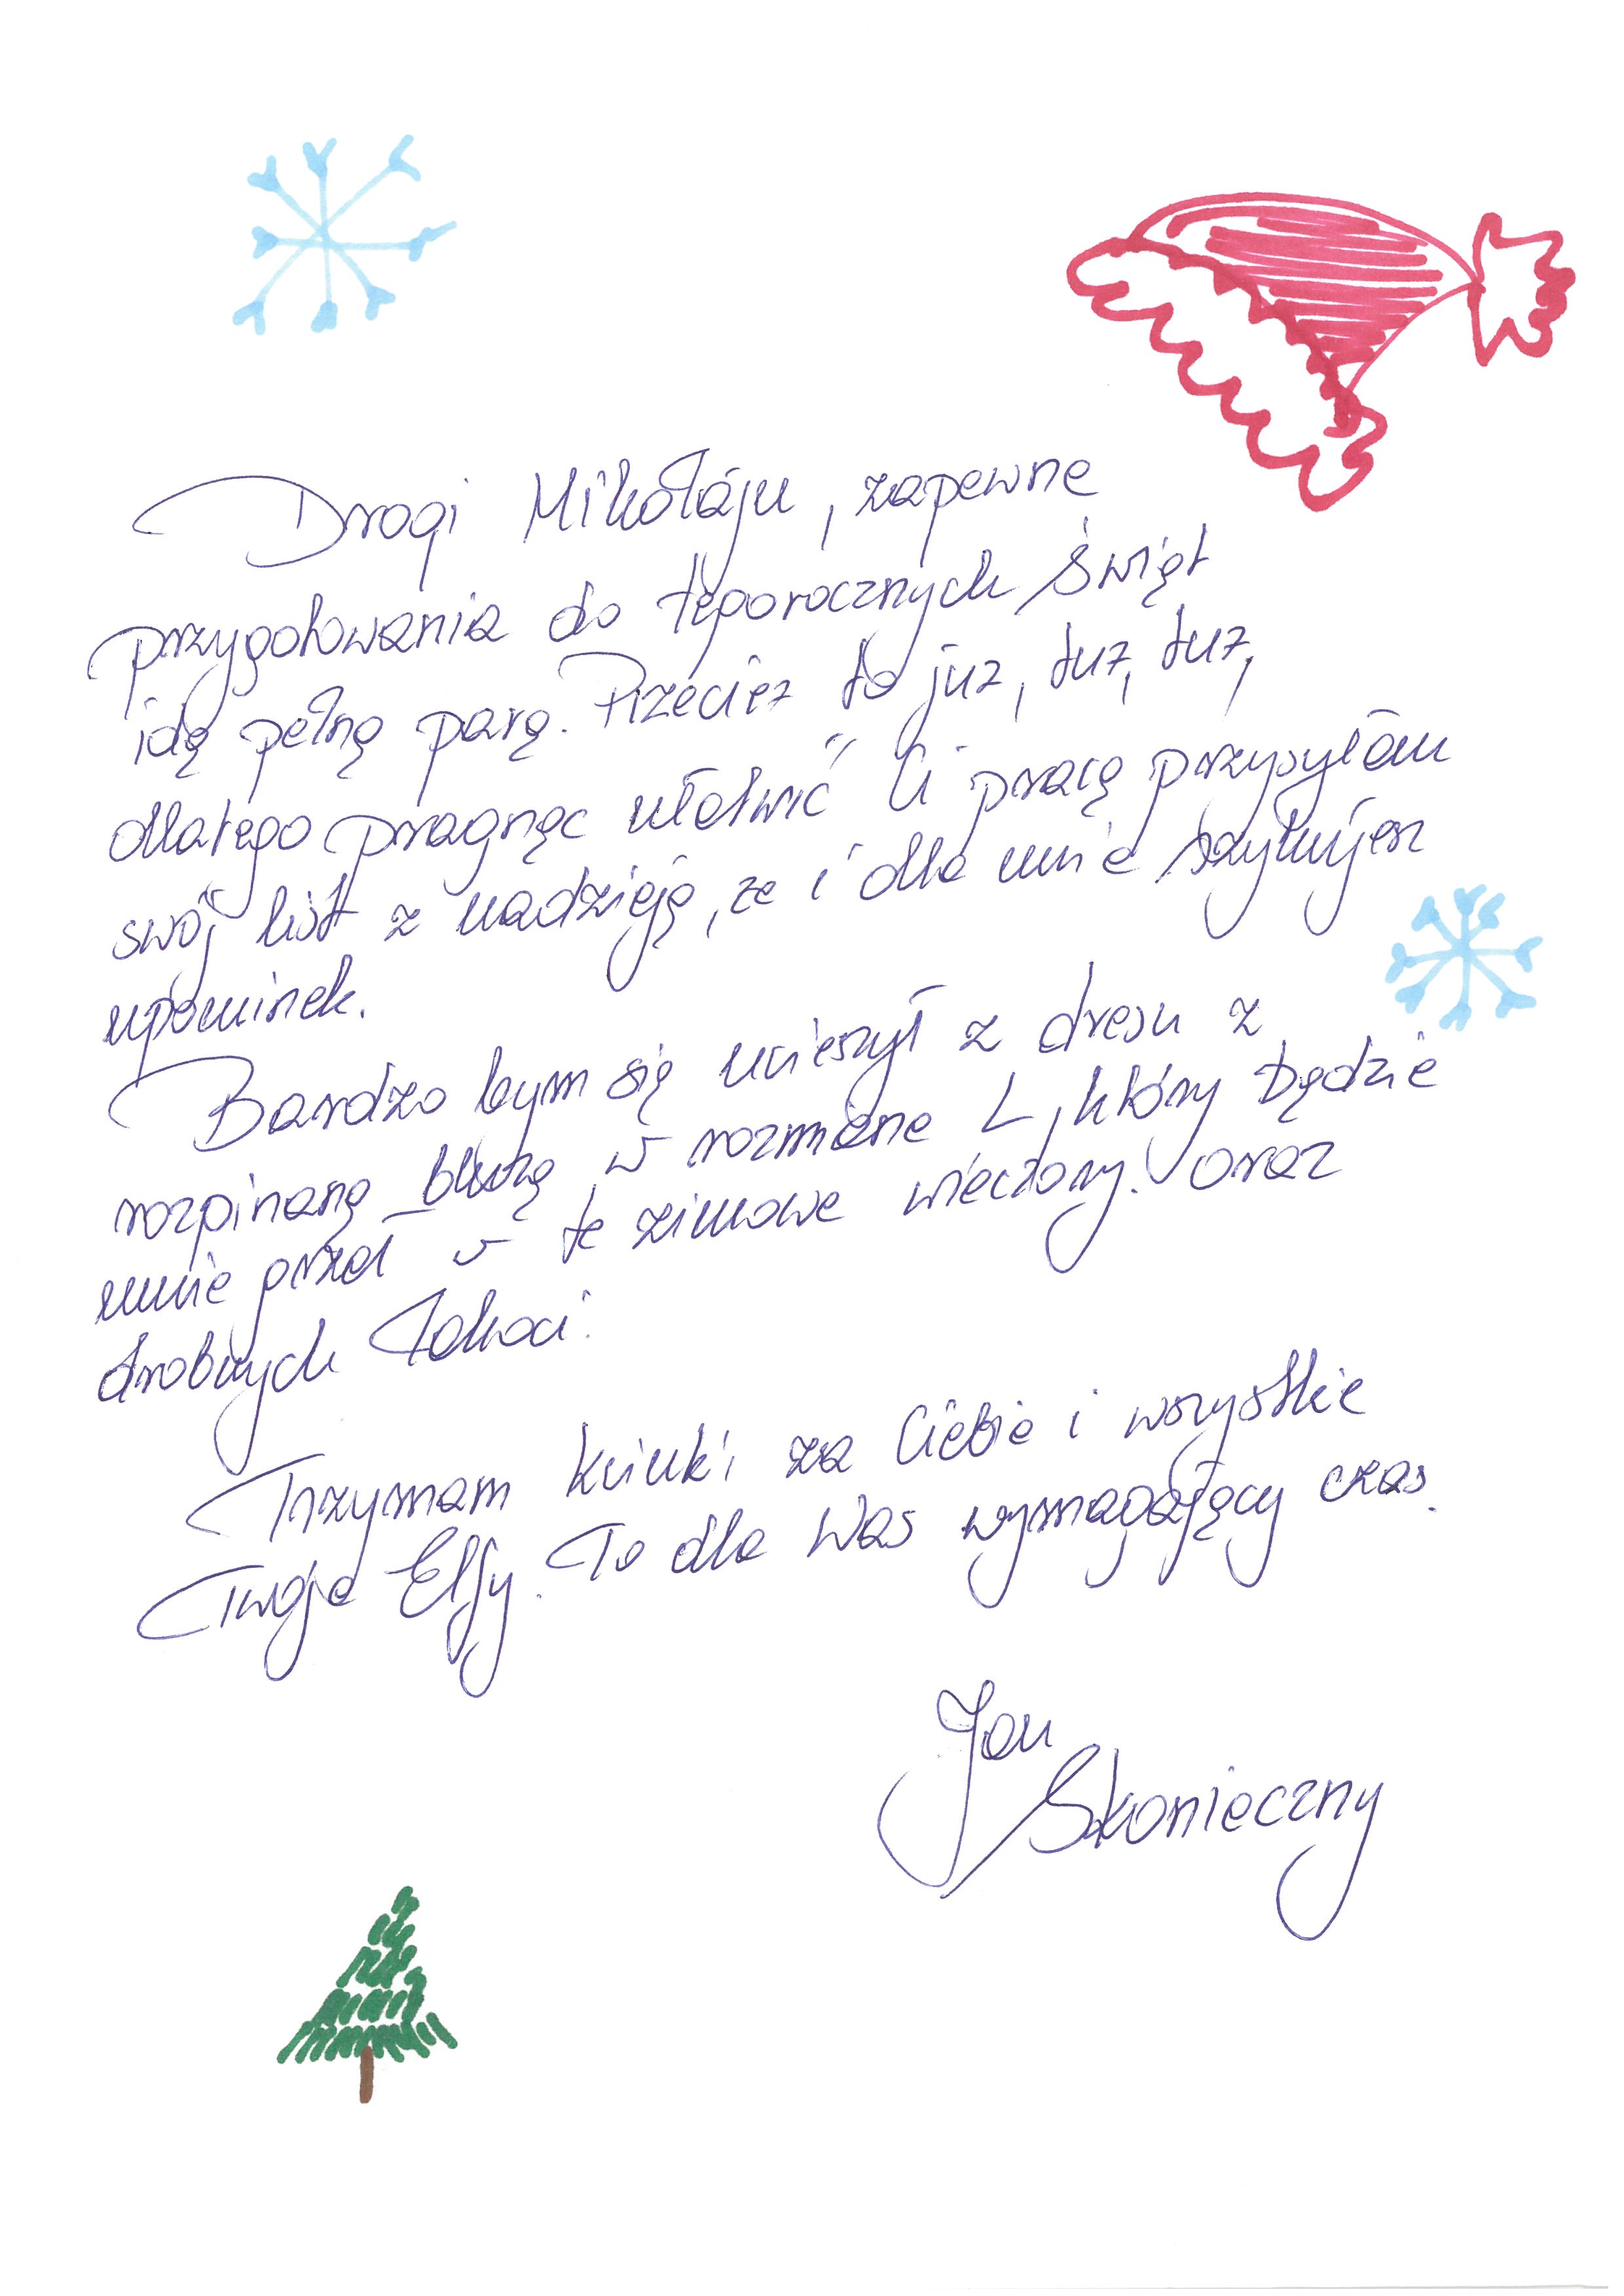 Drogi Mikołaju, zapewne
przygotowania do tegorocznych Świąt
idą pełną parą. Przecież to już, tuż, tuż,
dlatego pragnąc ułatwić Ci pracę przysyłam
swój list z nadzieją, że i dla mnie szykujesz
upominek.
Bardzo bym się ucieszył z dresu z
rozpinaną bluzą w rozmiarze L, który będzie
mnie grzał w te zimowe wieczory. Oraz
drobnych łakoci.
Trzymam kciuki za Ciebie i wszystkie
Twoje Elfy. To dla Was wymagający czas.
Jan
Skonieczny